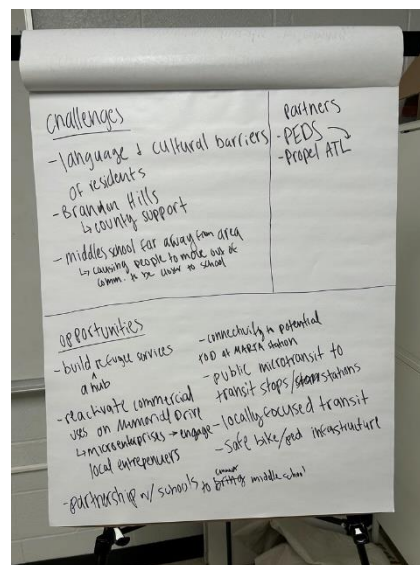 Challenges
- language & cultural barriers
of residents
- Brandon Hills
↳ county support
- middle school far away from area
↳ causing people to move out of
comm. to be closer to school
Partners
- PEDS
- Propel ATL
opportunities
- build refugee services
^
a hub
- reactivate commercial
uses on Memorial Drive
↳ microenterprises → engage
local entrepeneurs
- partnership w/ schools to connect middle school
- connectivity to potential
TOD at MARTA station
- public microtransit to
transit stops/stations
- locally focused transit
- safe bike/ped infrastructure